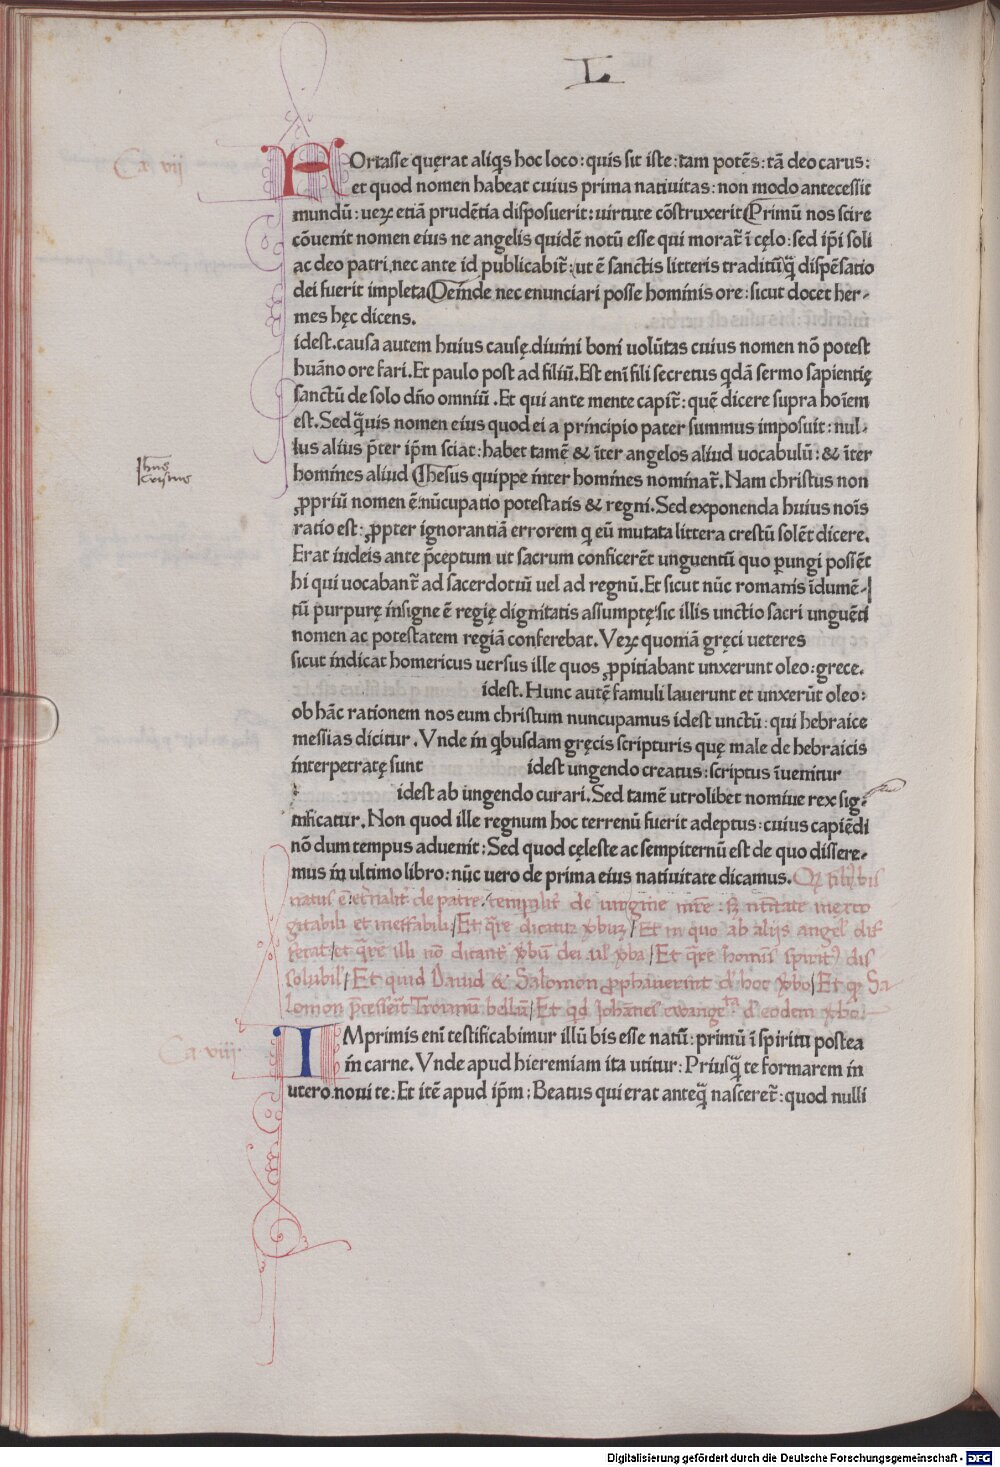 L
Ca. vij
FOrtasse quęrat aliq̃s hoc loco: quis sit iste: tam potẽs: tã deo carus:
et quod nomen habeat cuius prima natiuitas: non modo antecessit
mundũ: ueꝝ etiã prudẽtia disposuerit: uirtute cõstruxerit Primũ nos scire
cõuenit nomen eius ne angelis quidẽ notũ esse qui morat̃ ĩ cęlo: sed ip̃i soli
ac deo patri, nec ante id publicabit̃: ut ẽ sanctis litteris traditũ q̃ dispẽsatio
dei fuerit impleta Deinde nec enunciari posse hominis ore: sicut docet her-
mes hęc dicens.
idest. causa autem huius causę. diuini boni uolũtas cuius nomen nõ potest
huãno ore fari. Et paulo post ad filiũ. Est eni fili secretus qdã sermo sapientię
sanctũ de solo dño omniũ. Et qui ante mente capit̃: quẽ dicere supra hoĩem
est. Sed q̃uis nomen eius quod ei a principio pater summus imposuit: nul-
lus alius p̃ter ip̃m sciat: habet tamẽ & ĩter angelos aliud uocabulũ: & ĩter
homines aliud Ihesus quippe inter homines nominat̃. Nam christus non
ꝓpriũ nomen ẽ: nũcupatio potestatis & regni. Sed exponenda huius noĩs
ratio est: ꝓpter ignorantiã errorem q eũ mutata littera crestũ solẽt dicere.
Erat iudeis ante p̃ceptum ut sacrum conficerẽt unguentũ quo ꝑungi possẽt
hi qui uocabant̃ ad sacerdotiũ uel ad regnũ. Et sicut nũc romanis ĩdumẽ-
tũ purpurę insigne ẽ regię dignitatis assumptę: sic illis unctio sacri unguẽti
nomen ac potestatem regiã conferebat. Veꝝ quoniã gręci ueteres
sicut indicat homericus uersus ille quos ꝓpitiabant unxerunt oleo: grece.
idest. Hunc autẽ famuli lauerunt et unxerũt oleo:
ob hãc rationem nos eum christum nuncupamus idest unctũ: qui hebraice
messias dicitur. Vnde in qbusdam gręcis scripturis quę male de hebraicis
interpretatę sunt idest ungendo creatus: scriptus ĩuenitur
idest ab ungendo curari. Sed tamẽ utrolibet nomine rex sig-
nificatur. Non quod ille regnum hoc terrenũ fuerit adeptus: cuius capiẽdi
nõ dum tempus aduenit: Sed quod cęleste ac sempiternũ est de quo dissere-
mus in ultimo libro: nũc uero de prima eius natiuitate dicamus.
natus ẽ: et̃nalit̃ de patre: tempalit̃ de uirgine mr̃e:
gitabili et ineffabili / Et q̃re dicatur / Et in quo ab alijs angel̃ dif
ferat / et q̃re illi nõ dicant̃ / Et q̃re homĩs spirit⁹ dis
solubil̃ / Et quid Dauid & Salomon ꝓphauerint d' hoc / Et qꝫ Sa-
lomon p̃cesserit Troianũ bellũ / Et qd Johãnes ewangelˢᵗᵃ d' eodem
Ca. viij
IMprimis eni testificabimur illũ bis esse natũ: primũ ĩ spiritu postea
in carne. Vnde apud hieremiam ita utitur: Priusq̃ te formarem in
utero noui te: Et itẽ apud ip̃m: Beatus qui erat anteq̃ nasceret̃: quod nulli
Digitalisierung gefördert durch die Deutsche Forschungsgemeinschaft - DFG